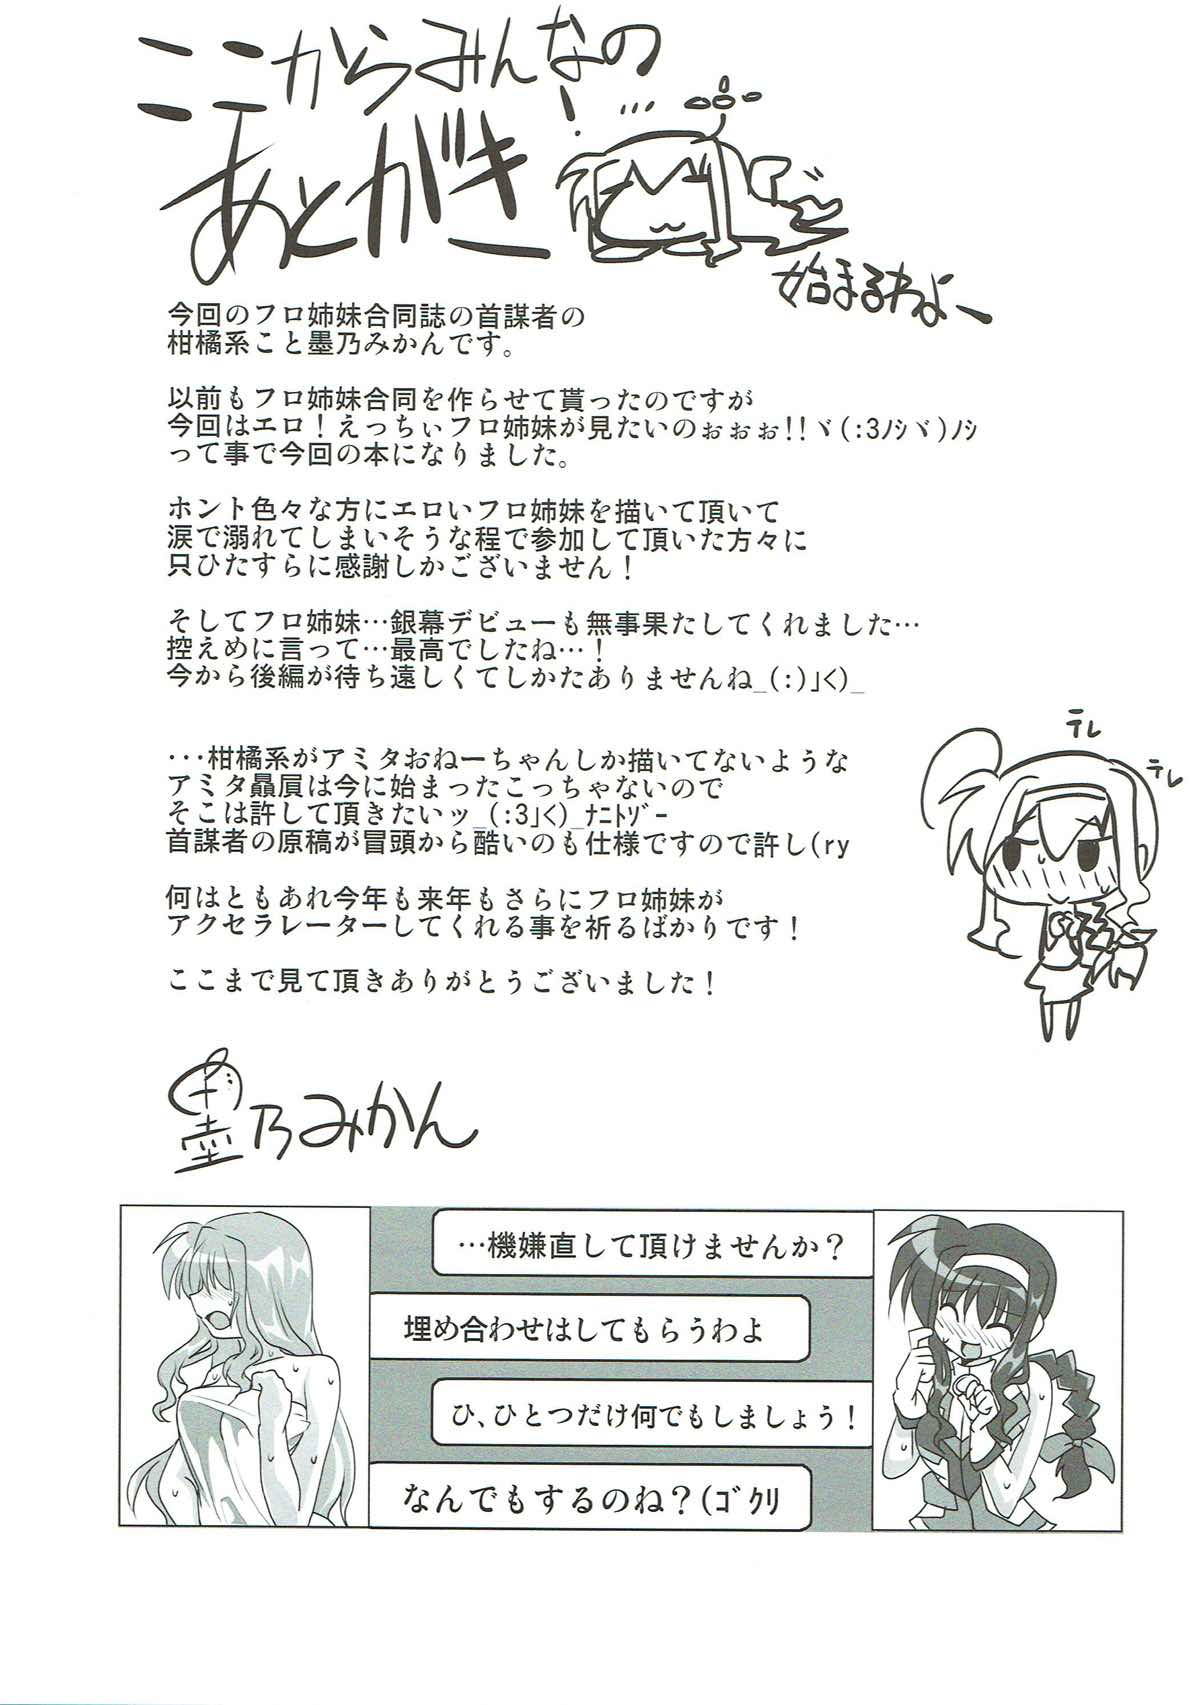 ここからみんなの
あとがき!…
始まるわよー
今回のフロ姉妹合同誌の首謀者の
柑橘系こと墨乃みかんです。
以前もフロ姉妹合同を作らせて貰ったのですが
今回はエロ！えっちぃフロ姉妹が見たいのぉぉぉ!!ヾ(:3ﾉｼヾ)ﾉｼ
って事で今回の本になりました。
ホント色々な方にエロいフロ姉妹を描いて頂いて
涙で溺れてしまいそうな程で参加して頂いた方々に
只ひたすらに感謝しかございません！
そしてフロ姉妹…銀幕デビューも無事果たしてくれました…
控えめに言って…最高でしたね…！
今から後編が待ち遠しくてしかたありませんね_(:)」<)_
…柑橘系がアミタおねーちゃんしか描いてないような
アミタ贔屓は今に始まったこっちゃないので
そこは許して頂きたいッ_(:3」<)_ﾅﾆﾄｿﾞｰ
首謀者の原稿が冒頭から酷いのも仕様ですので許し(ry
何はともあれ今年も来年もさらにフロ姉妹が
アクセラレーターしてくれる事を祈るばかりです！
ここまで見て頂きありがとうございました！
テレ
テレ
墨乃みかん
…機嫌直して頂けませんか？
埋め合わせはしてもらうわよ
ひ、ひとつだけ何でもしましょう！
なんでもするのね？(ｺﾞｸﾘ